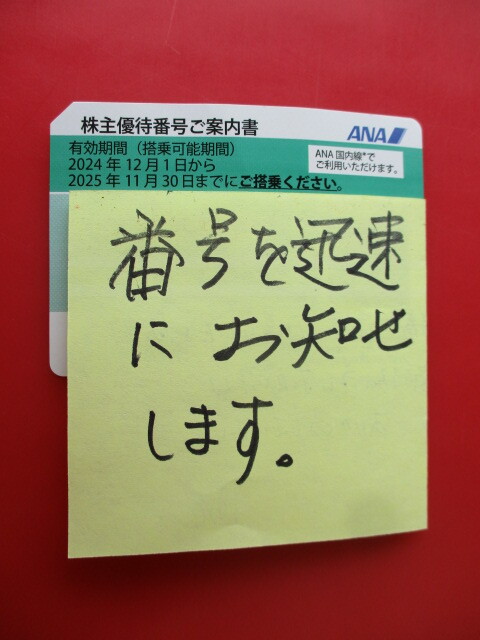 株主優待番号ご案内書
ANA
有効期間（搭乗可能期間）
2024年12月1日から
2025年11月30日までにご搭乗ください。
ANA国内線*で
ご利用いただけます。
番号を迅速
にお知せ
します。